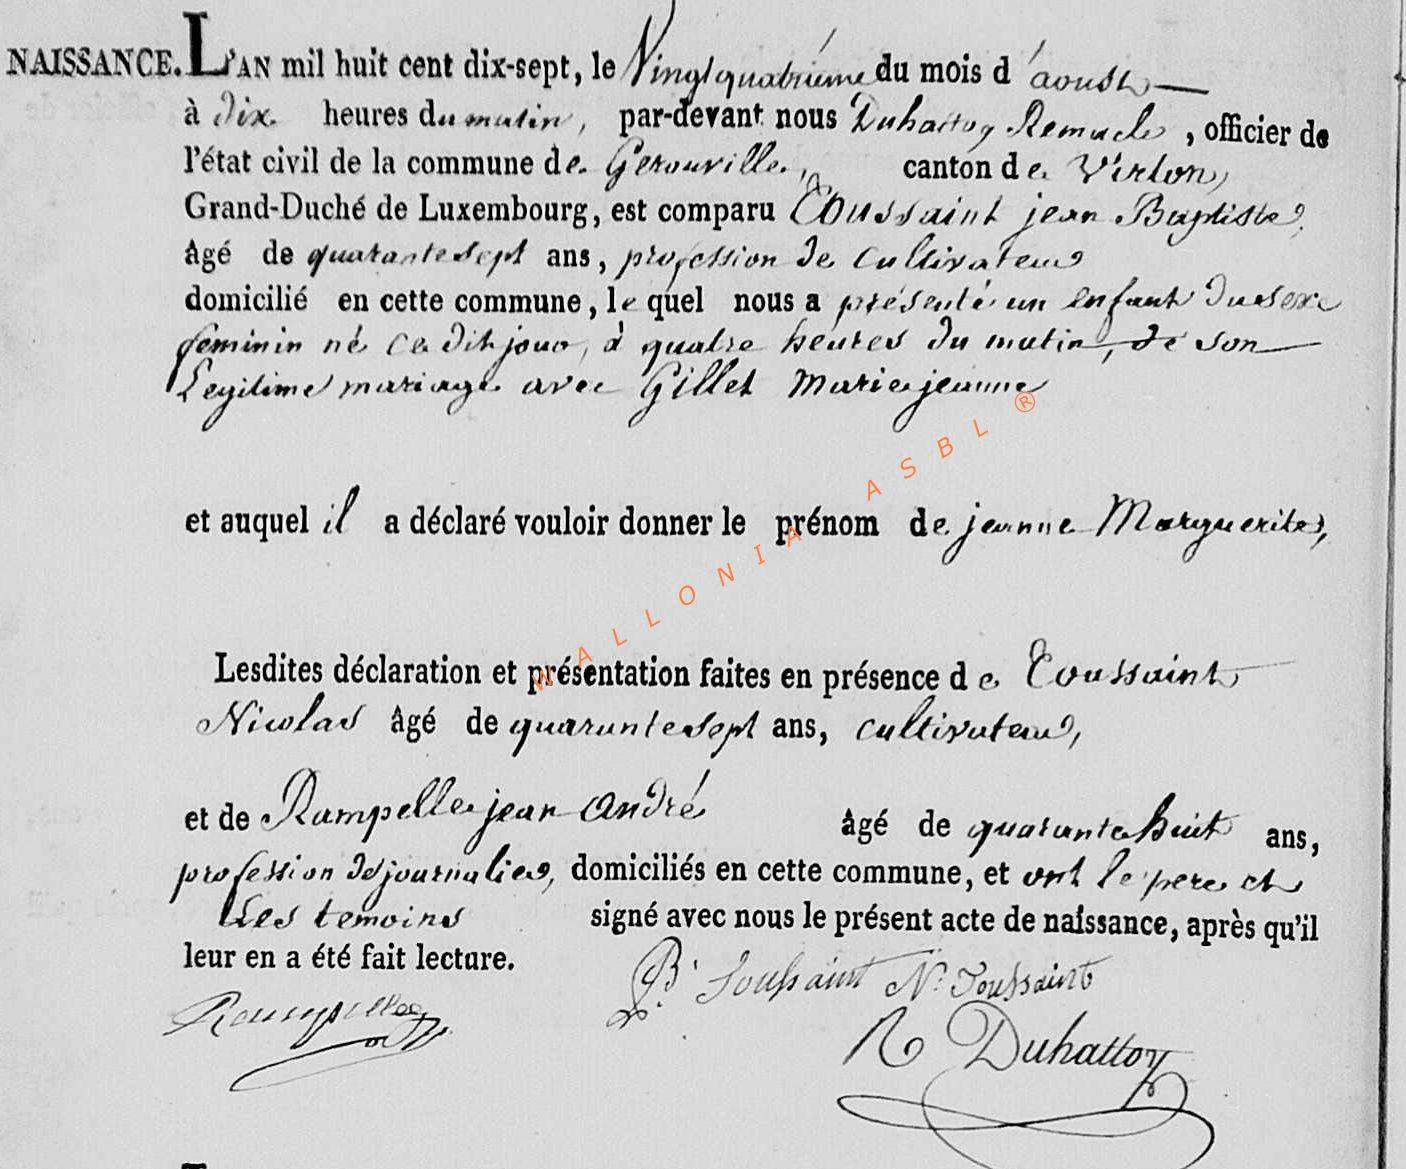 NAISSANCE. L'AN mil huit cent dix-sept, le Vingtquatriéme du mois d'aoust
à dix heures du matin, par-devant nous Duhattoy Remacle, officier de
l'état civil de la commune de Gerouville, canton de Virton,
Grand-Duché de Luxembourg, est comparu Toussaint jean Baptiste,
âgé de quarantesept ans, profession de cultivateur
domicilié en cette commune, le quel nous a présenté un enfant du sexe
feminin né ce dit jour, à quatre heures du matin, de son
Legitime mariage avec Gillet Marie jeanne
et auquel il a déclaré vouloir donner le prénom de jeanne Marguerite,
Lesdites déclaration et présentation faites en présence de Toussaint
Nicolas âgé de quarantesept ans, cultivateur,
et de Rampelle jean André âgé de quarantehuit ans,
profession de journalier, domiciliés en cette commune, et ont le pere et
Les temoins signé avec nous le présent acte de naissance, après qu'il
leur en a été fait lecture.
B. Toussaint N. Toussaint
Rampelle
R Duhattoy
WALLONIA ASBL ®